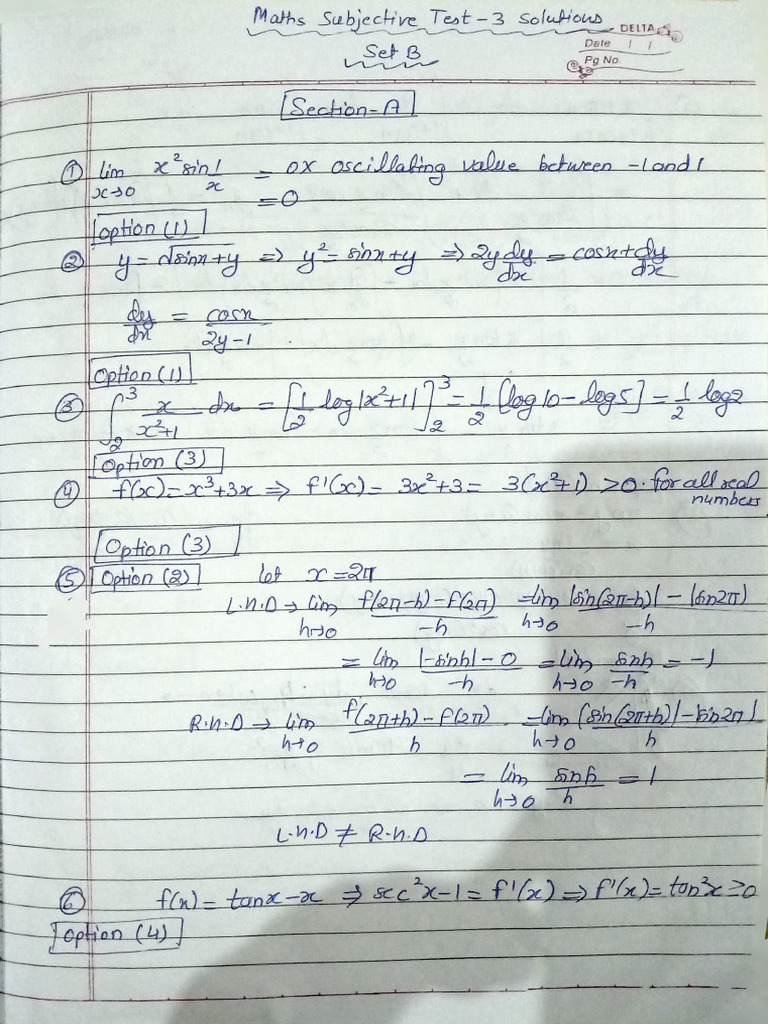 Maths Subjective Test-3 Solutions
DELTA
Set B
Date | |
Pg No.
Section-A
① lim x→0 x² sin 1/x = 0x oscillating value between -1 and 1
= 0
Option (1)
② y = √sinx+y => y² = sinx+y => 2y dy/dx = cosx + dy/dx
dy/dx = cosx/2y-1
Option (1)
③ ∫₂³ x/x²+1 dx = [1/2 log|x²+1|]₂³ = 1/2 [log10 - log5] = 1/2 log2
Option (3)
④ f(x) = x³+3x => f'(x) = 3x²+3 = 3(x²+1) >0. for all real
numbers
Option (3)
⑤ Option (2) let x = 2π
L.H.D → lim h→0 f(2π-h) - f(2π)/-h = lim h→0 |sin(2π-h)| - |sin2π|/-h
= lim h→0 |-sinh| - 0/-h = lim h→0 sinh/-h = -1
R.H.D → lim h→0 f(2π+h) - f(2π)/h = lim h→0 |sin(2π+h)| - |sin2π|/h
= lim h→0 sinh/h = 1
L.H.D ≠ R.H.D
⑥ f(x) = tanx-x => sec²x-1 = f'(x) => f'(x) = tan²x ≥0
Option (4)